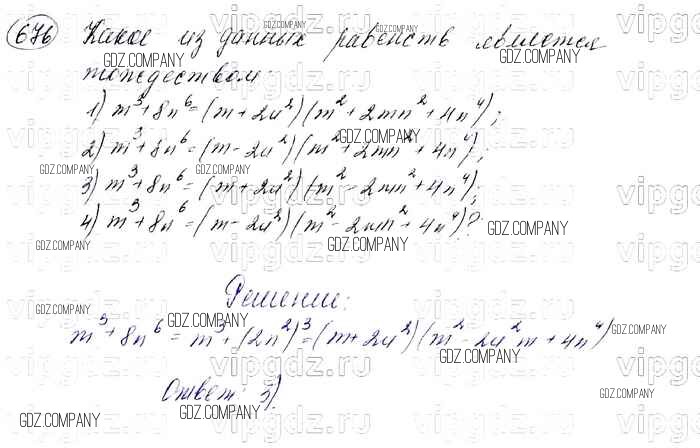 676 Какое из данных равенств является
тождеством:
1) m³+8n⁶=(m+2n²)(m²+2mn²+4n⁴);
2) m³+8n⁶=(m-2n²)(m²+2mn²+4n⁴);
3) m³+8n⁶=(m+2n²)(m²-2mn²+4n⁴);
4) m³+8n⁶=(m-2n²)(m²-2mn²+4n⁴)?
Решение:
m³+8n⁶=m³+(2n²)³=(m+2n²)(m²-2n²m+4n⁴)
Ответ: 3).
GDZ.COMPANY
vipgdz.ru